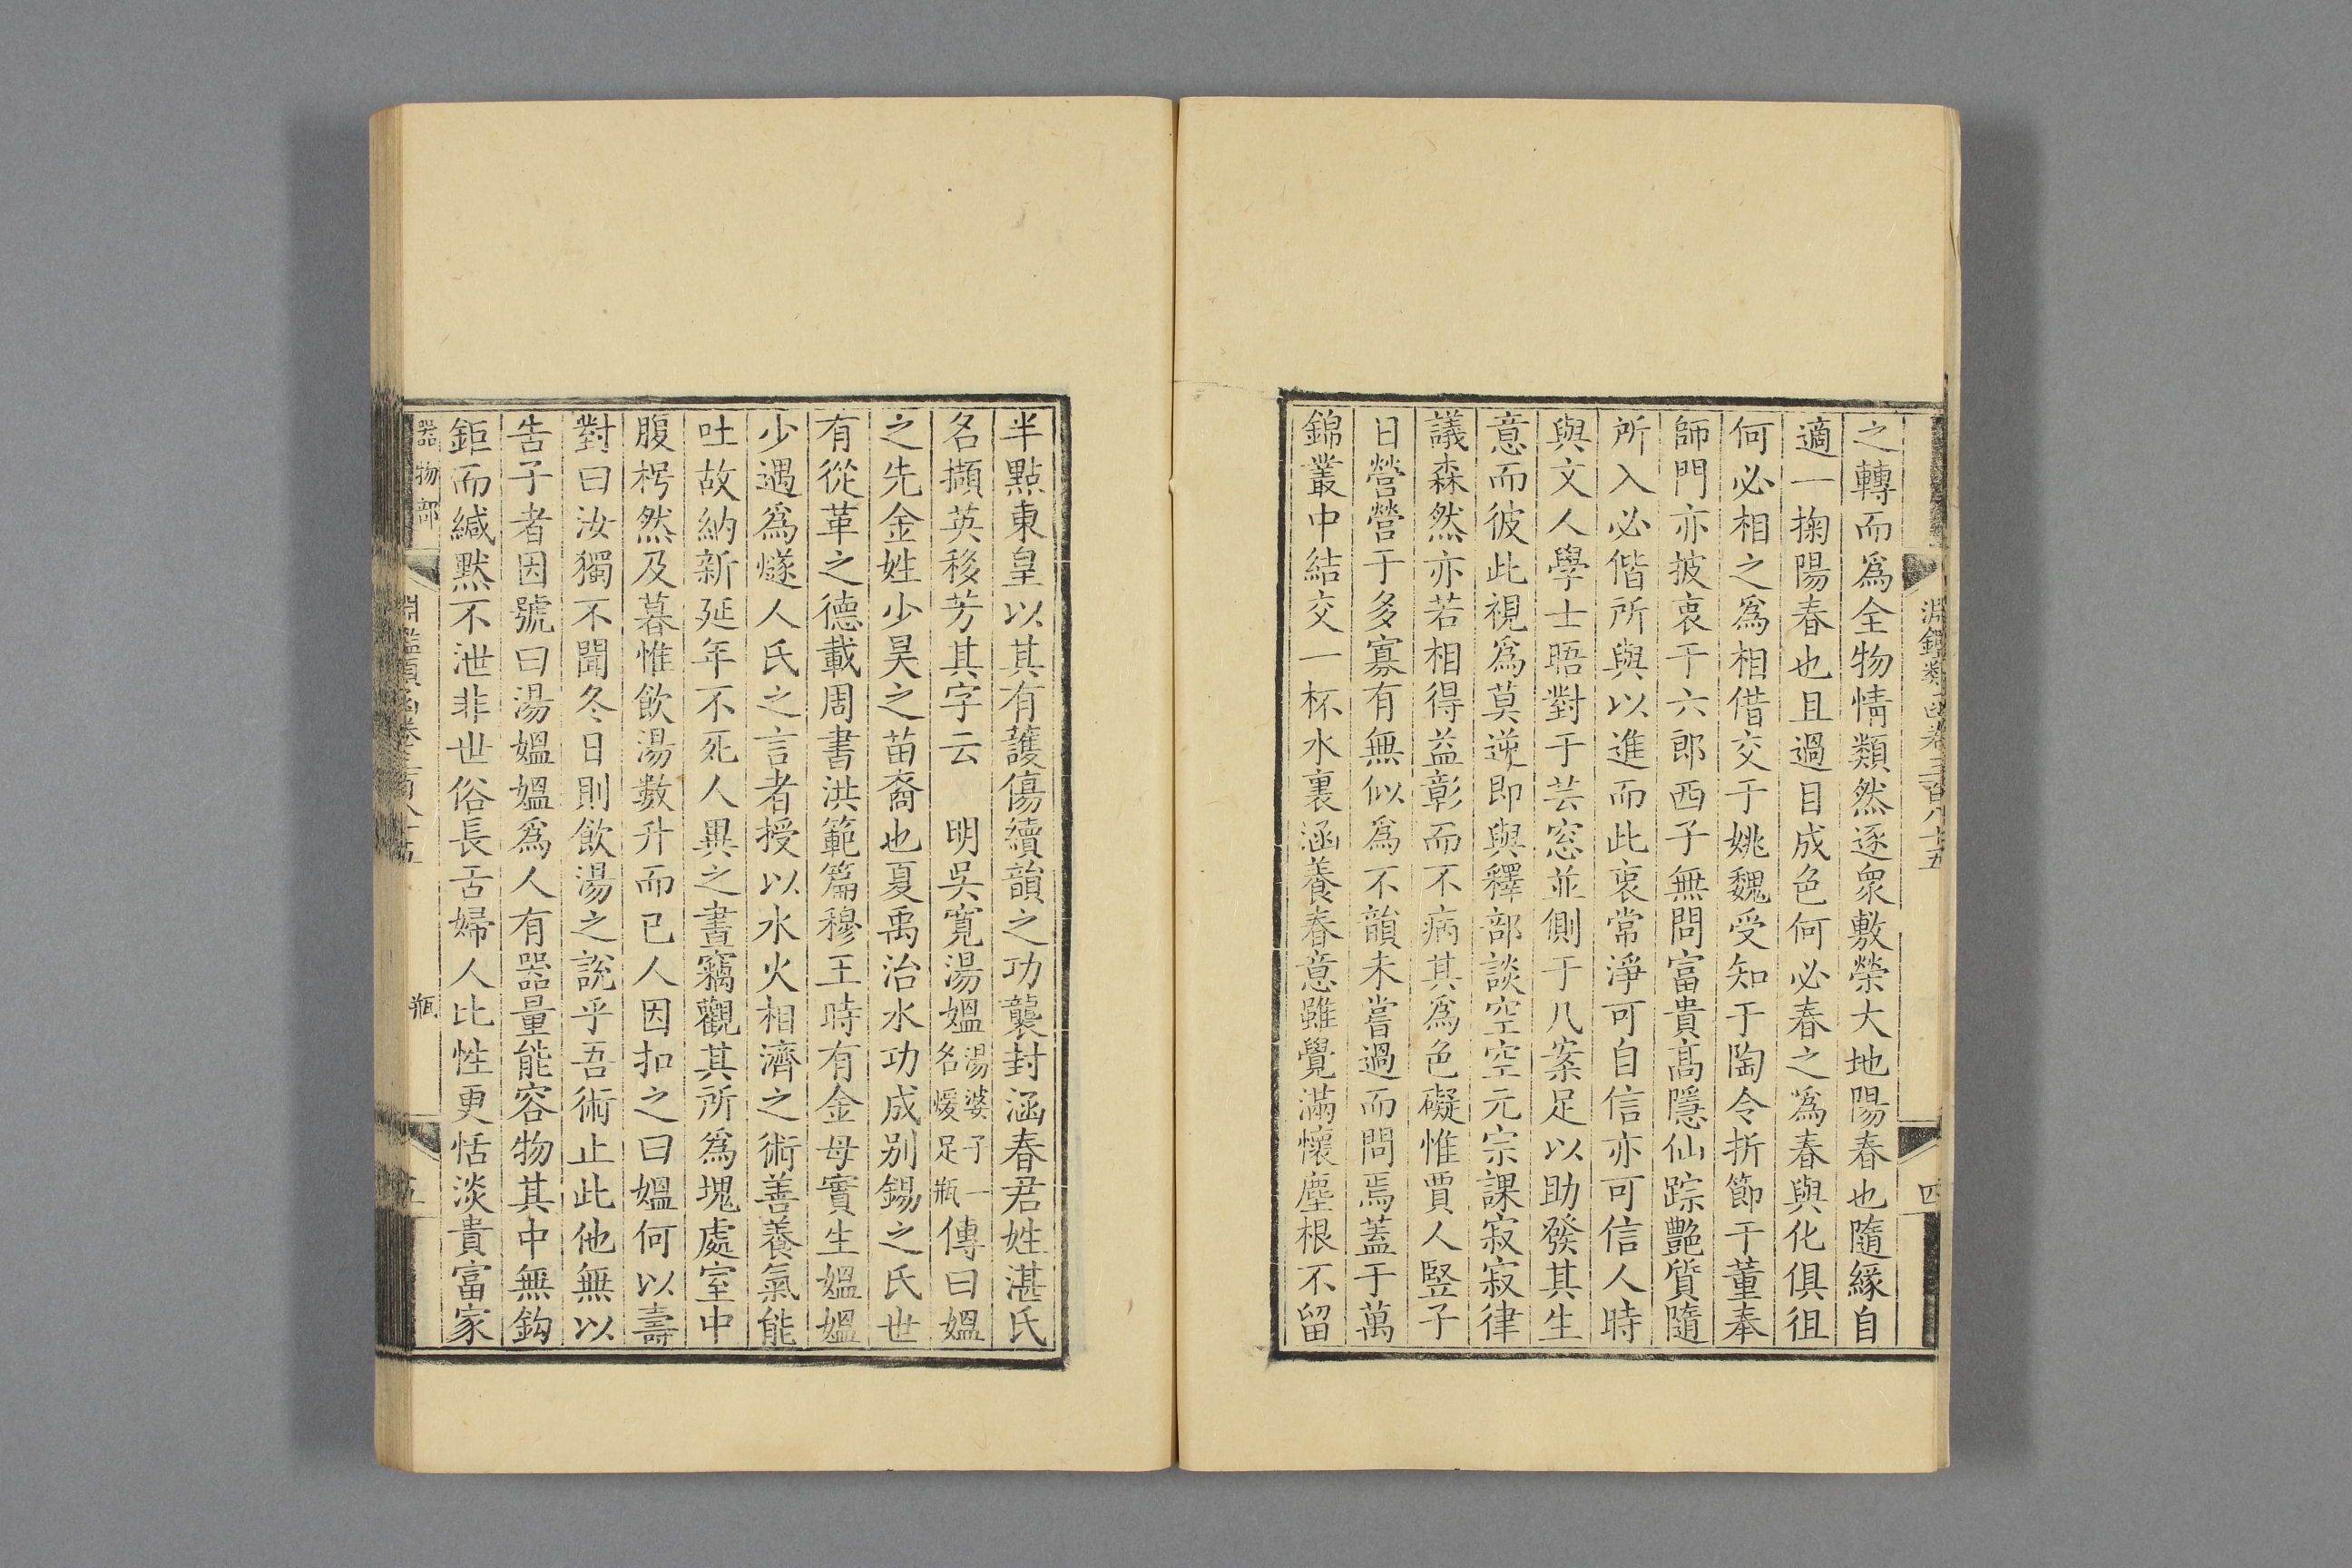 淵鑑類函卷三百八十五
四
之轉而爲全物情類然逐衆敷榮大地陽春也隨緣自
適一掬陽春也且過目成色何必春之爲春與化俱徂
何必相之爲相借交于姚魏受知于陶令折節于董奉
師門亦披衷于六郎西子無問富貴高隱仙踪艷質隨
所入必偕所與以進而此衷常淨可自信亦可信人時
與文人學士晤對于芸窓並側于几案足以助發其生
意而彼此視爲莫逆即與釋部談空空元宗課寂寂律
議森然亦若相得益彰而不病其爲色礙惟賈人竪子
日營營于多寡有無似爲不韻未嘗過而問焉蓋于萬
錦叢中結交一杯水裏涵養春意雖覺滿懷塵根不留
半點東皇以其有護傷續韻之功襲封涵春君姓湛氏
名擷英移芳其字云　明吳寬湯媼湯婆子一名煖足瓶傳曰媼
之先金姓少昊之苗裔也夏禹治水功成別錫之氏世
有從革之德載周書洪範篇穆王時有金母實生媼媼
少遇爲燧人氏之言者授以水火相濟之術善養氣能
吐故納新延年不死人異之晝竊觀其所爲塊處室中
腹枵然及暮惟飲湯數升而已人因扣之曰媼何以壽
對曰汝獨不聞冬日則飲湯之說乎吾術止此他無以
告子者因號曰湯媼媼爲人有器量能容物其中無鈎
鉅而緘默不泄非世俗長舌婦人比性更恬淡貴富家
器物部
淵鑑類函卷三百八十五
瓶
五